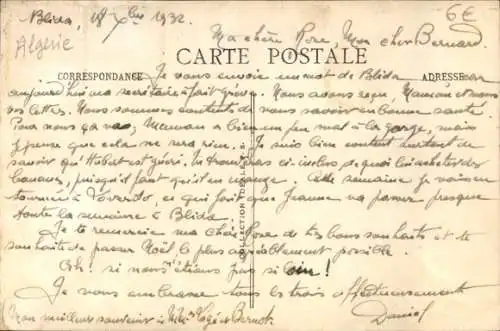 Blida, 18 Xbre 1932.
6€
Algérie
Ma chère Rose, Mon cher Bernard.
CARTE POSTALE
CORRESPONDANCE
ADRESSE
Je vous envoie un mot de Blida car
aujourd'hui ma secrétaire a fait grève. Nous avons reçu, Maman et nous
vos lettres. Nous sommes contents de vous savoir en bonne santé.
Pour nous ça va, Maman a bien un peu mal à la gorge, mais
j'espère que cela ne sera rien. Je suis bien content surtout de
savoir qu'Hubert est guéri. Tu trouveras ci-inclus de quoi lui acheter des
bananes, puisqu'il faut qu'il en mange. Cette semaine je vais en
tournée à ce qui fait que Jeanne va passer presque
toute la semaine à Blida.
Je te remercie ma chère Rose de tes bons souhaits et te
souhaite de passer Noël le plus agréablement possible.
Ah! si nous n'étions pas si loin!
Je vous embrasse tous les trois affectueusement
Mon meilleur souvenir à
Daniel
COLLECTION IDÉALE